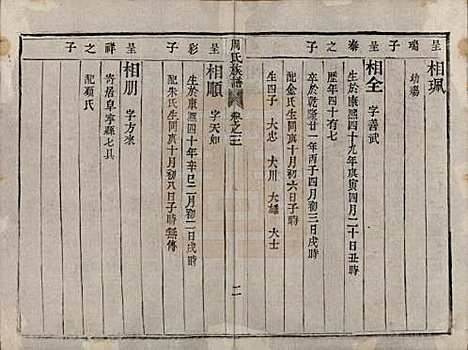 呈瑞子
相珮
幼殤
呈泰子
相全 字善武
生於康熙四十九年庚寅四月二十日丑時
歷年四十有七
卒於乾隆廿一年丙子四月初三日戌時
配金氏生同庚十月初六日子時
生四子 大忠 大川 大雄 大士
周氏族譜 卷之三 二
呈彩之子
相順 字天如
生於康熙四十年辛巳二月初二日戌時
配朱氏生同庚十月初八日子時 無傳
呈祥之子
相朋 字方來
寄居阜寧縣七具
配顧氏